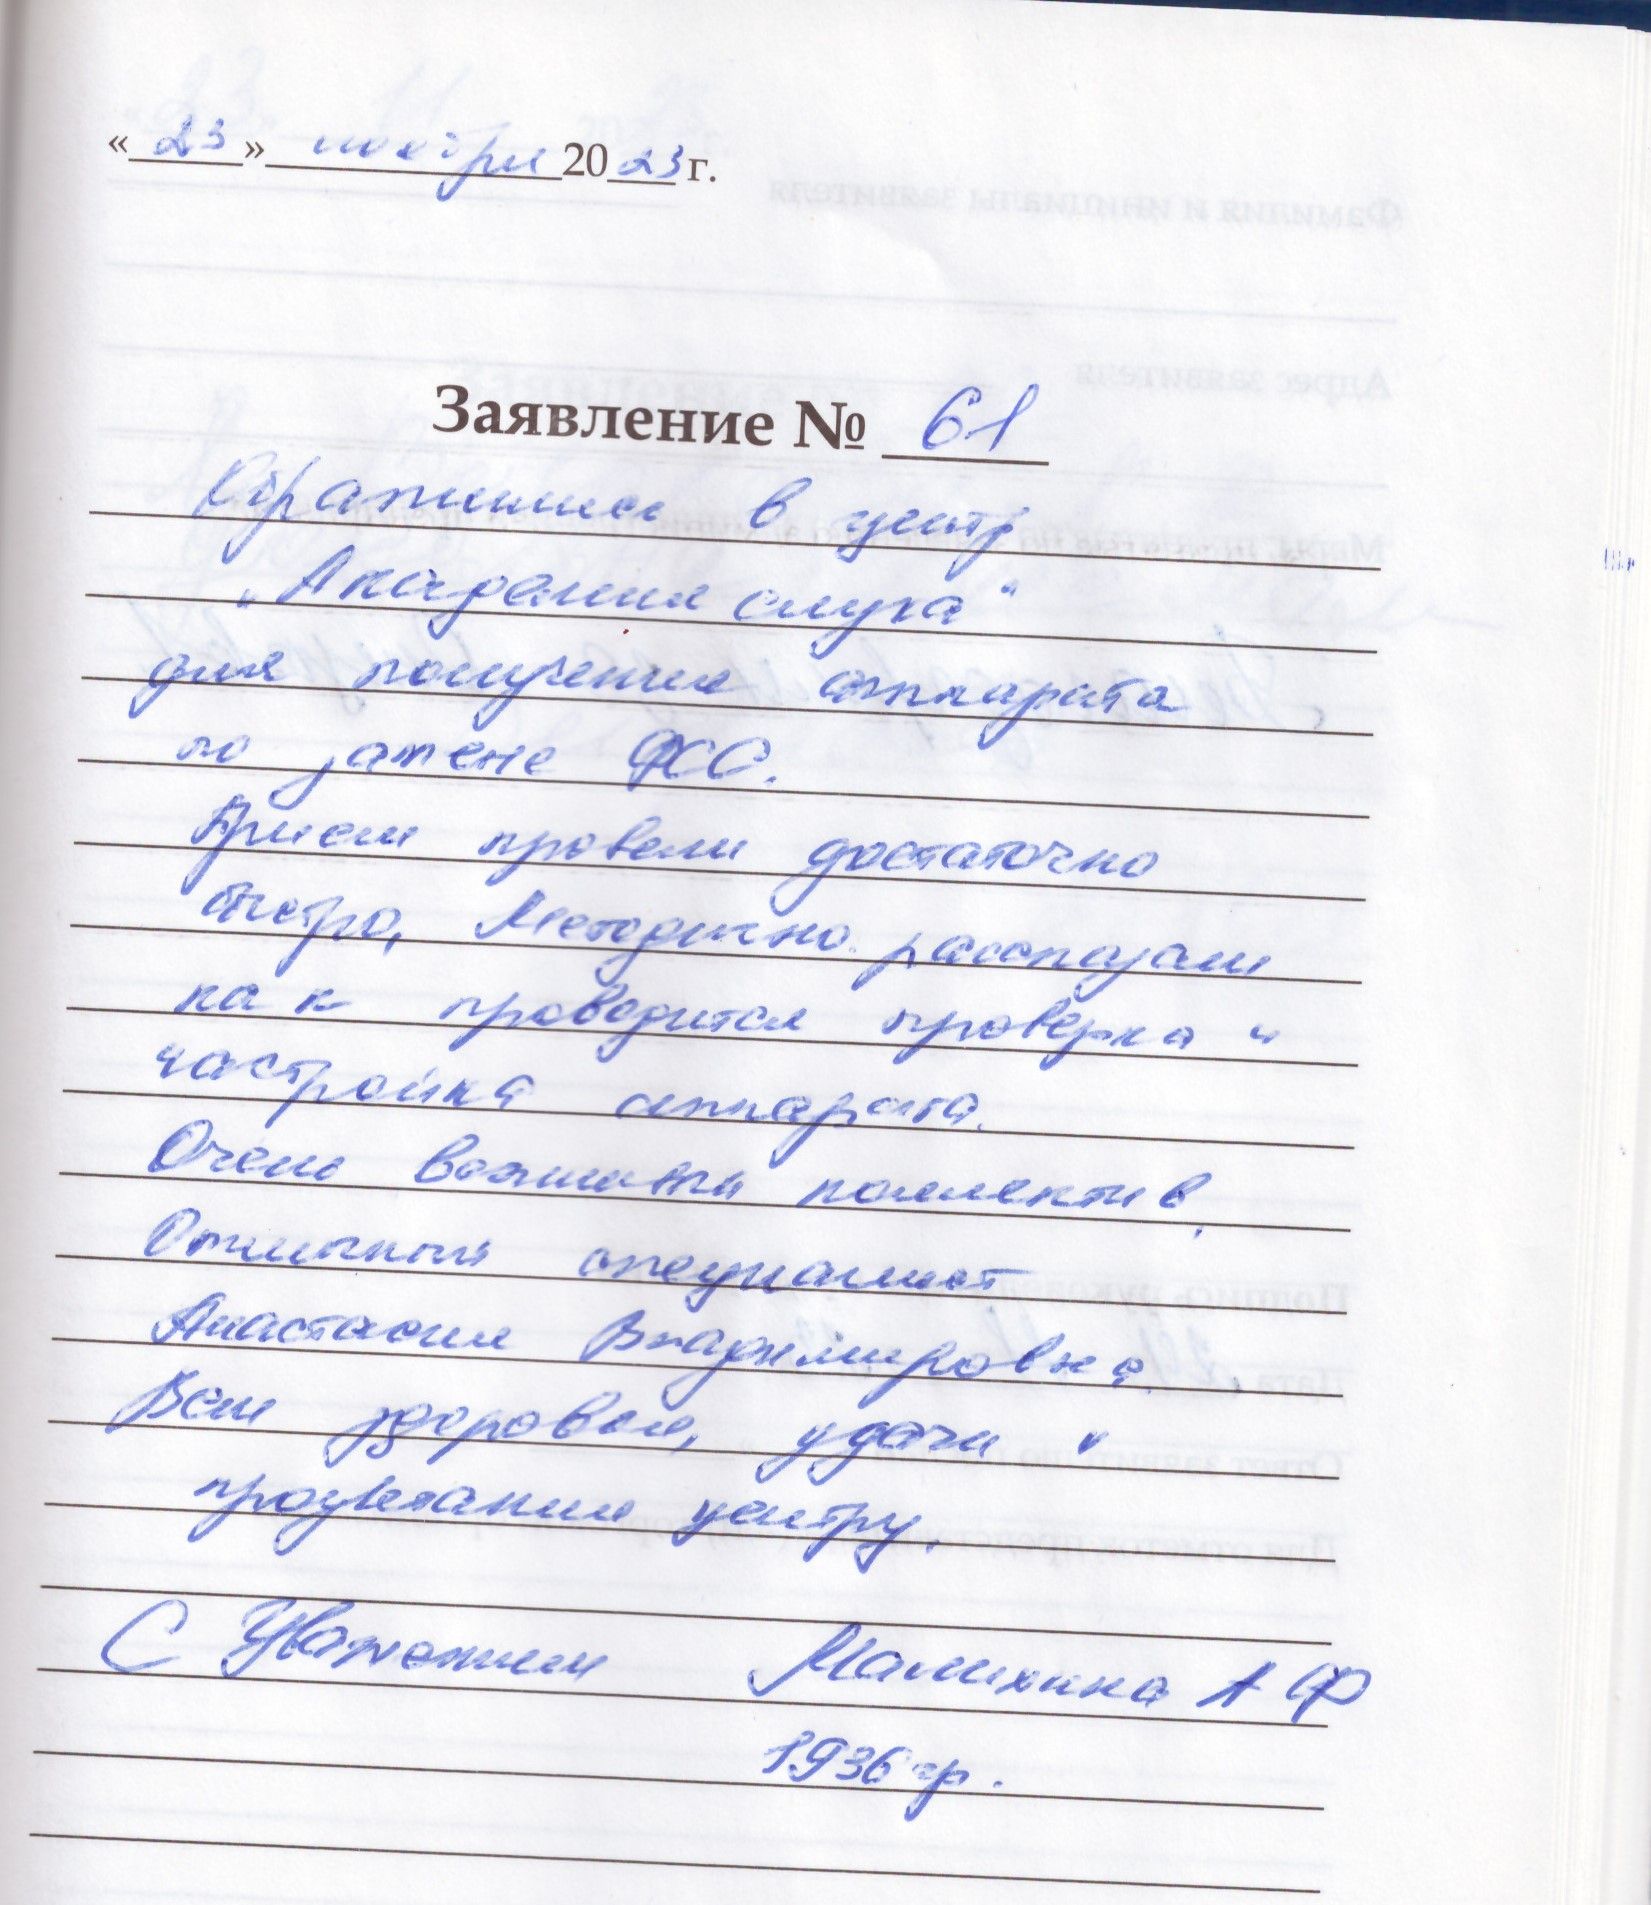 «23» ноября 2023 г.
Заявление № 61
Обратились в центр
"Академия слуха"
для получения аппарата
по замене ФСС.
Прием провели достаточно
быстро, Методично рассказали
как проводится проверка и
настройка аппарата.
Очень вежливый коллектив.
Отличный специалист
Анастасия Владимировна.
Всем здоровья, удачи и
процветания центру.
С Уважением Малихина А Ф
1936 гр.